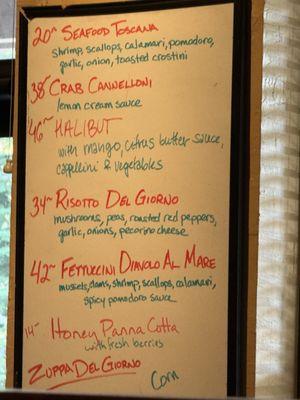 20~ SEAFOOD TOSCANA
shrimp, scallops, calamari, pomodoro,
garlic, onion, toasted crostini
38~ CRAB CANNELLONI
lemon cream sauce
46~ HALIBUT
with mango, citrus butter sauce,
cappellini & vegetables
34~ RISOTTO DEL GIORNO
mushrooms, peas, roasted red peppers,
garlic, onions, pecorino cheese
42~ FETTUCINI DIAVOLO AL MARE
mussels, clams, shrimp, scallops, calamari,
spicy pomodoro sauce
14~ Honey Panna Cotta
with fresh berries
ZUPPA DEL GIORNO
Corn